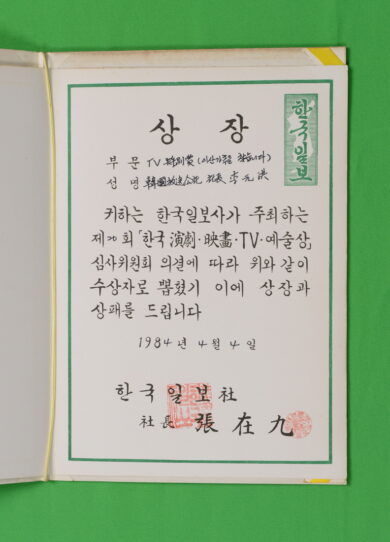 한국일보
상장
부문 TV 特別賞 (이산가족을 찾습니다)
성명 韓國放送公社 社長 李元洪
귀하는 한국일보사가 주최하는
제20회「한국 演劇·映畫·TV·예술상」
심사위원회 의결에 따라 위와 같이
수상자로 뽑혔기 이에 상장과
상패를 드립니다
1984년 4월 4일
한국일보社
社長 張在九